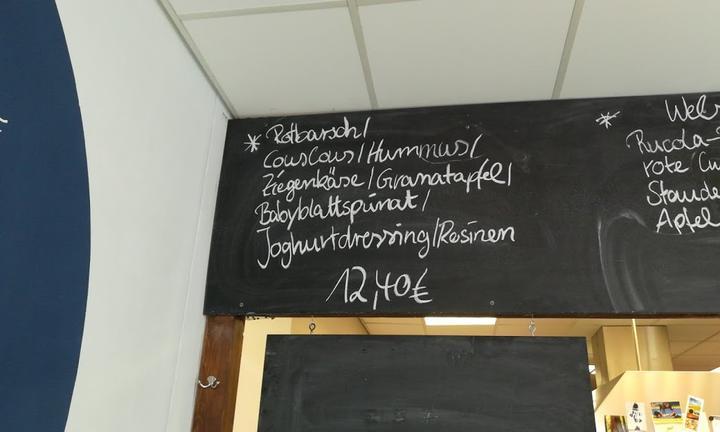 * Rotbarsch/
CousCous/Hummus/
Ziegenkäse/Granatapfel/
Babyblattspinat/
Joghurtdressing/Rosinen
12,40€
*
Rucola-
rote
Staude
Apfel